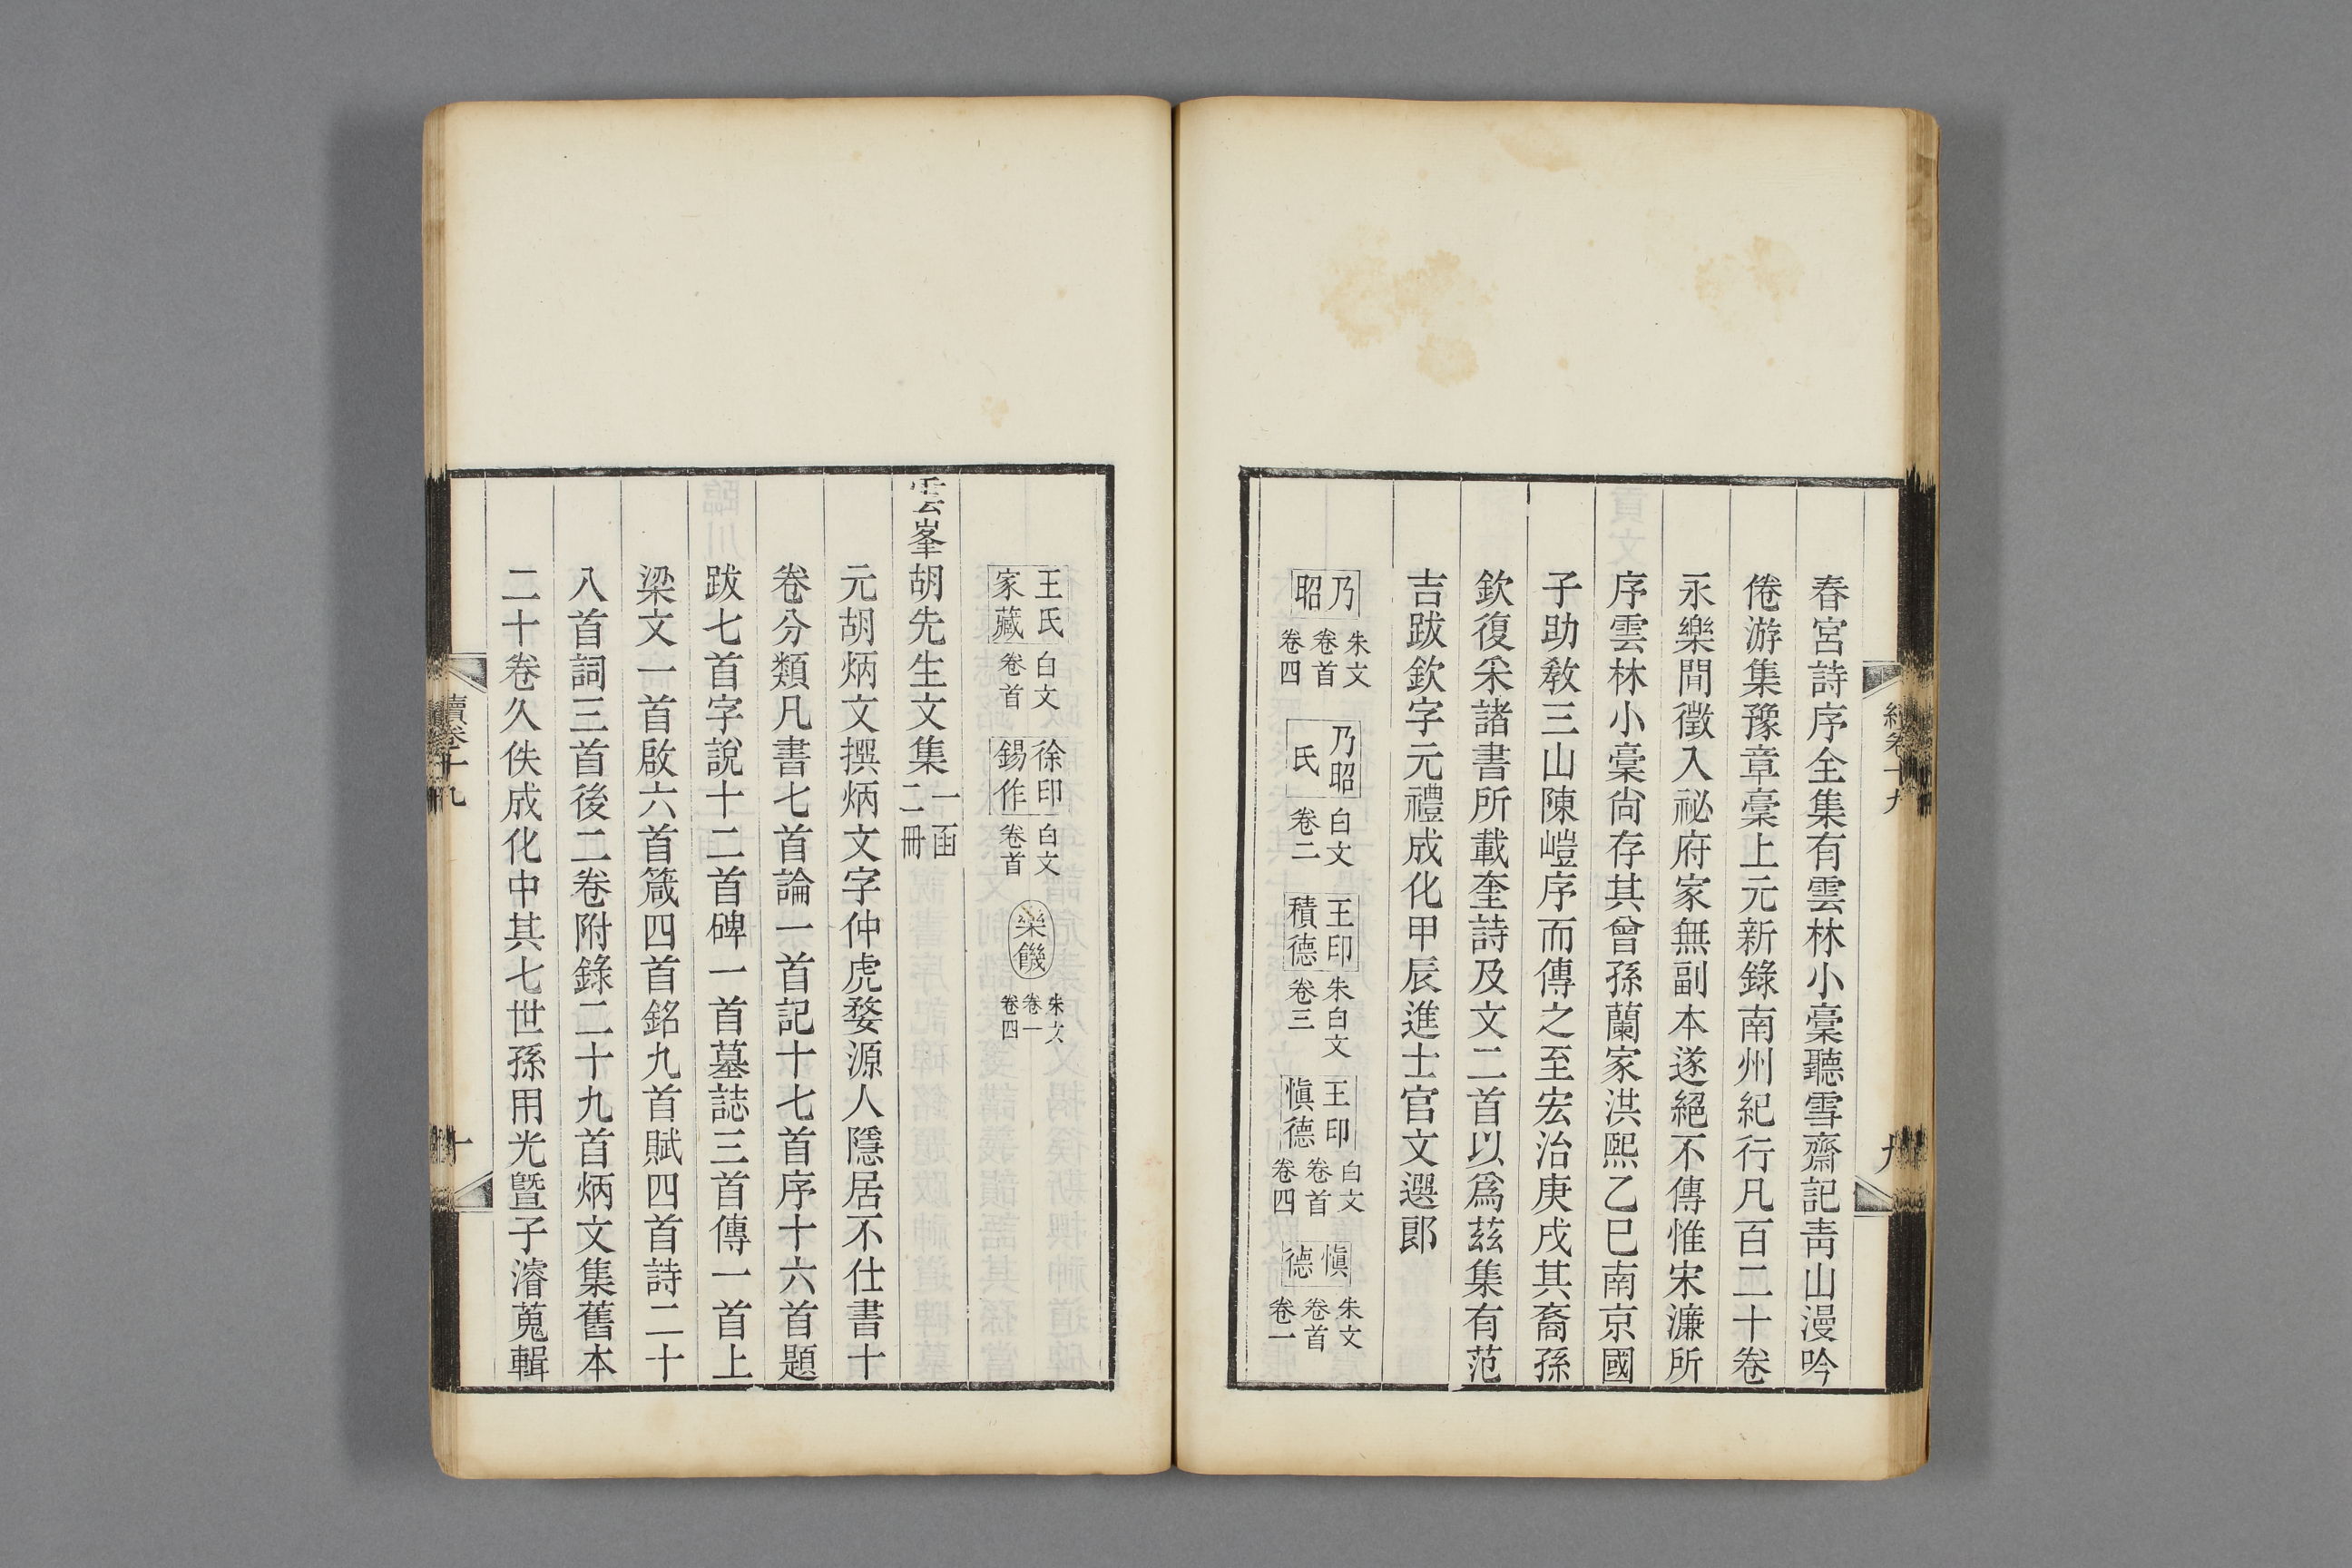 春宮詩序全集有雲林小稾聽雪齋記靑山漫吟
倦游集豫章稾上元新錄南州紀行凡百二十卷
永樂閒徵入祕府家無副本遂絕不傳惟宋濂所
序雲林小稾尙存其曾孫蘭家洪熙乙巳南京國
子助敎三山陳嵦序而傳之至宏治庚戌其裔孫
欽復采諸書所載奎詩及文二首以爲茲集有范
吉跋欽字元禮成化甲辰進士官文選郎
乃昭
朱文
卷首
卷四
乃昭氏
白文
卷二
王印積德
朱白文
卷三
王印愼德
白文
卷首
卷四
愼德
朱文
卷首
卷一
王氏家藏
白文
卷首
徐印錫作
白文
卷首
樂饑
朱文
卷一
卷四
雲峯胡先生文集
一函
二冊
元胡炳文撰炳文字仲虎婺源人隱居不仕書十
卷分類凡書七首論一首記十七首序十六首題
跋七首字說十二首碑一首墓誌三首傳一首上
梁文一首啟六首箴四首銘九首賦四首詩二十
八首詞三首後二卷附錄二十九首炳文集舊本
二十卷久佚成化中其七世孫用光曁子濬蒐輯
續卷十九
十